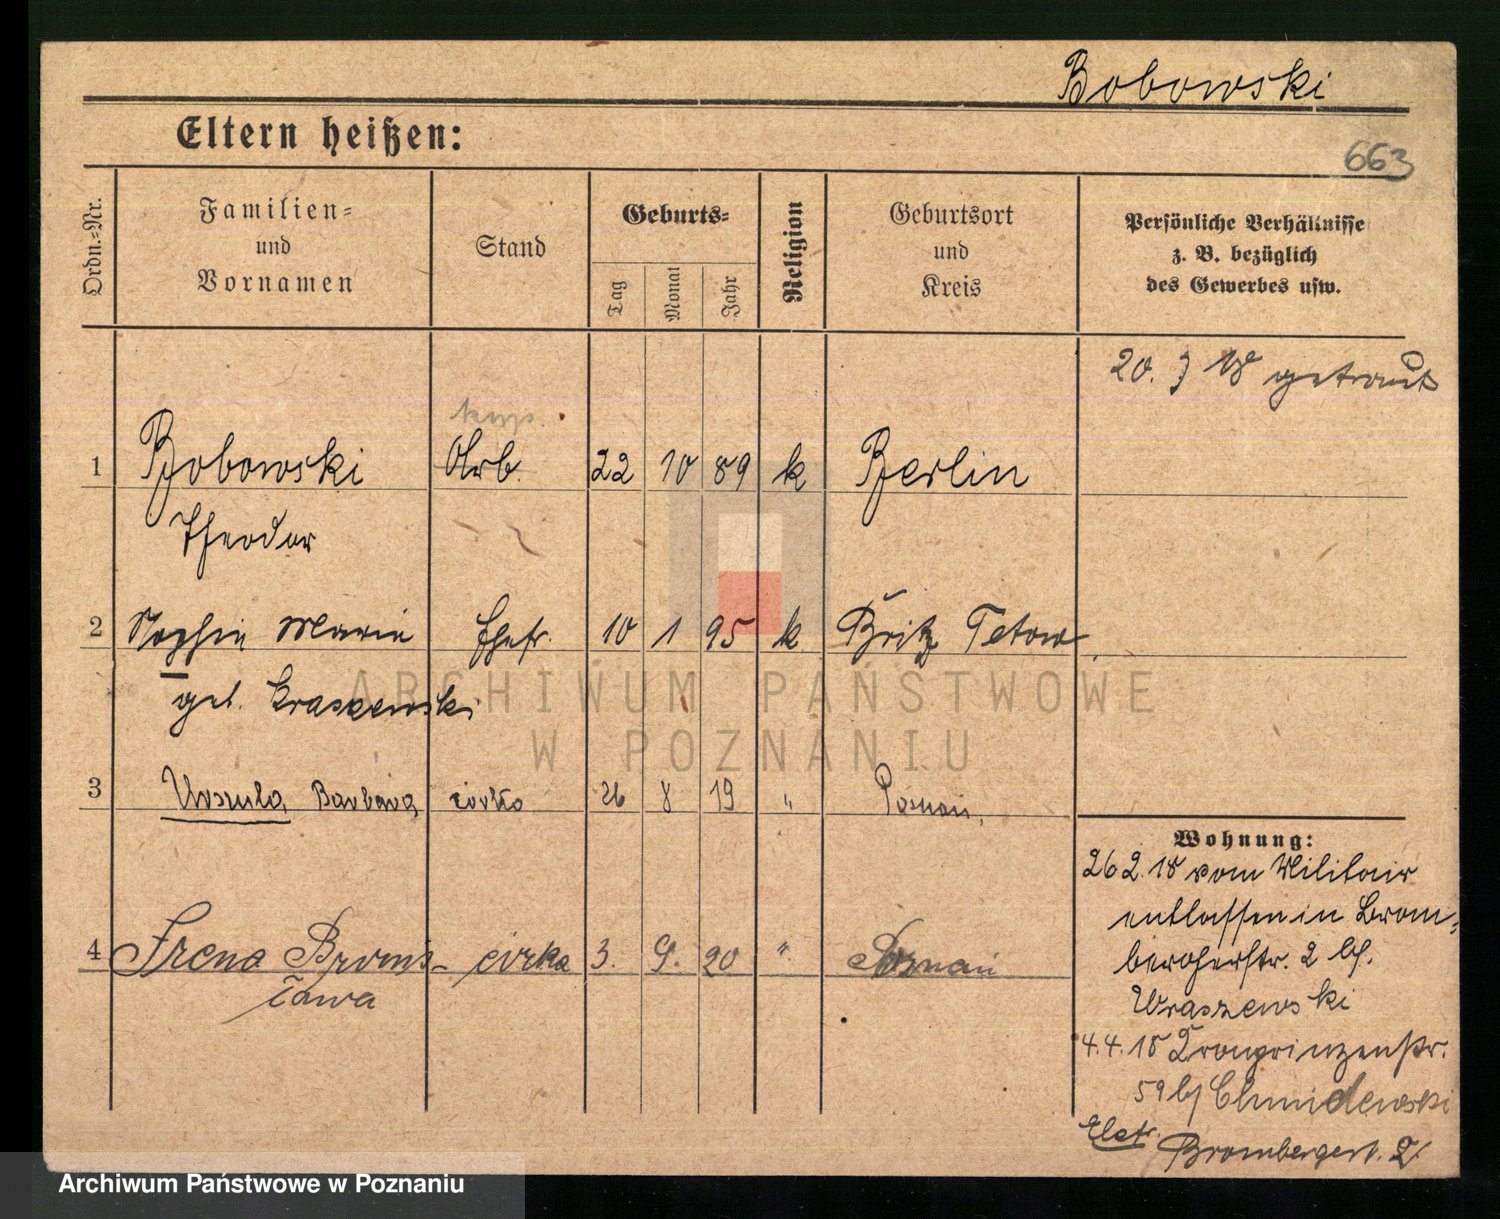 Bobowski
Eltern heißen:
663
Ordn.-Nr.
Familien-
und
Vornamen
Stand
Geburts-
Tag
Monat
Jahr
Religion
Geburtsort
und
Kreis
Persönliche Verhältnisse
z. B. bezüglich
des Gewerbes usw.
20. 3 18 getraut
1 Bobowski Arb. 22 10 89 k Berlin
Theodor
2 Sophie Marie Ehefr. 10 1 95 k Britz Tetow
geb. Kraszewski
3 Urszula Barbara córka 26 8 19 " Poznań
Wohnung:
26 2. 18 vom Militair
entlassen in Brom-
bergerstr. 2 bf.
Wraszewski
4 Irena Broni- córka 3. 9. 20 " Poznań
sława
4.4.18 Kronprinzenstr.
59 bf Chmielewski
Elst. Brombergerst. 2.
ARCHIWUM PAŃSTWOWE
W POZNANIU
Archiwum Państwowe w Poznaniu